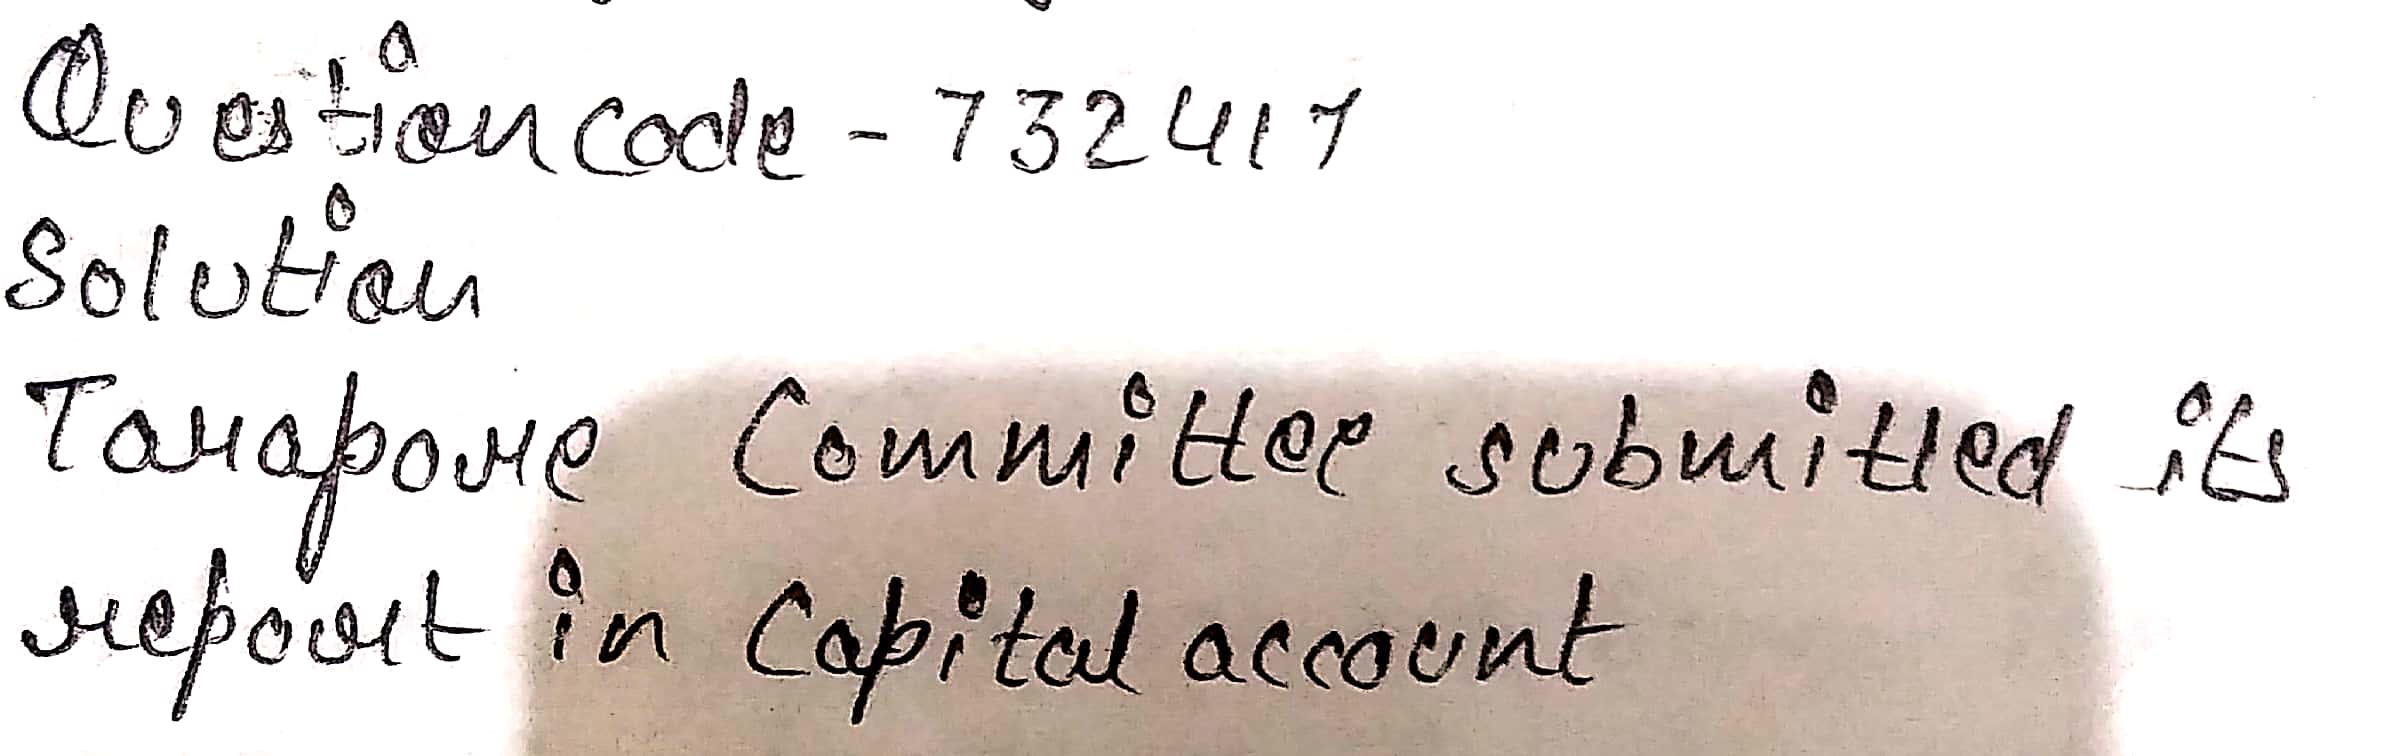 Question code - 732417
Solution
Tarapore Committee submitted its
repoort in Capital account